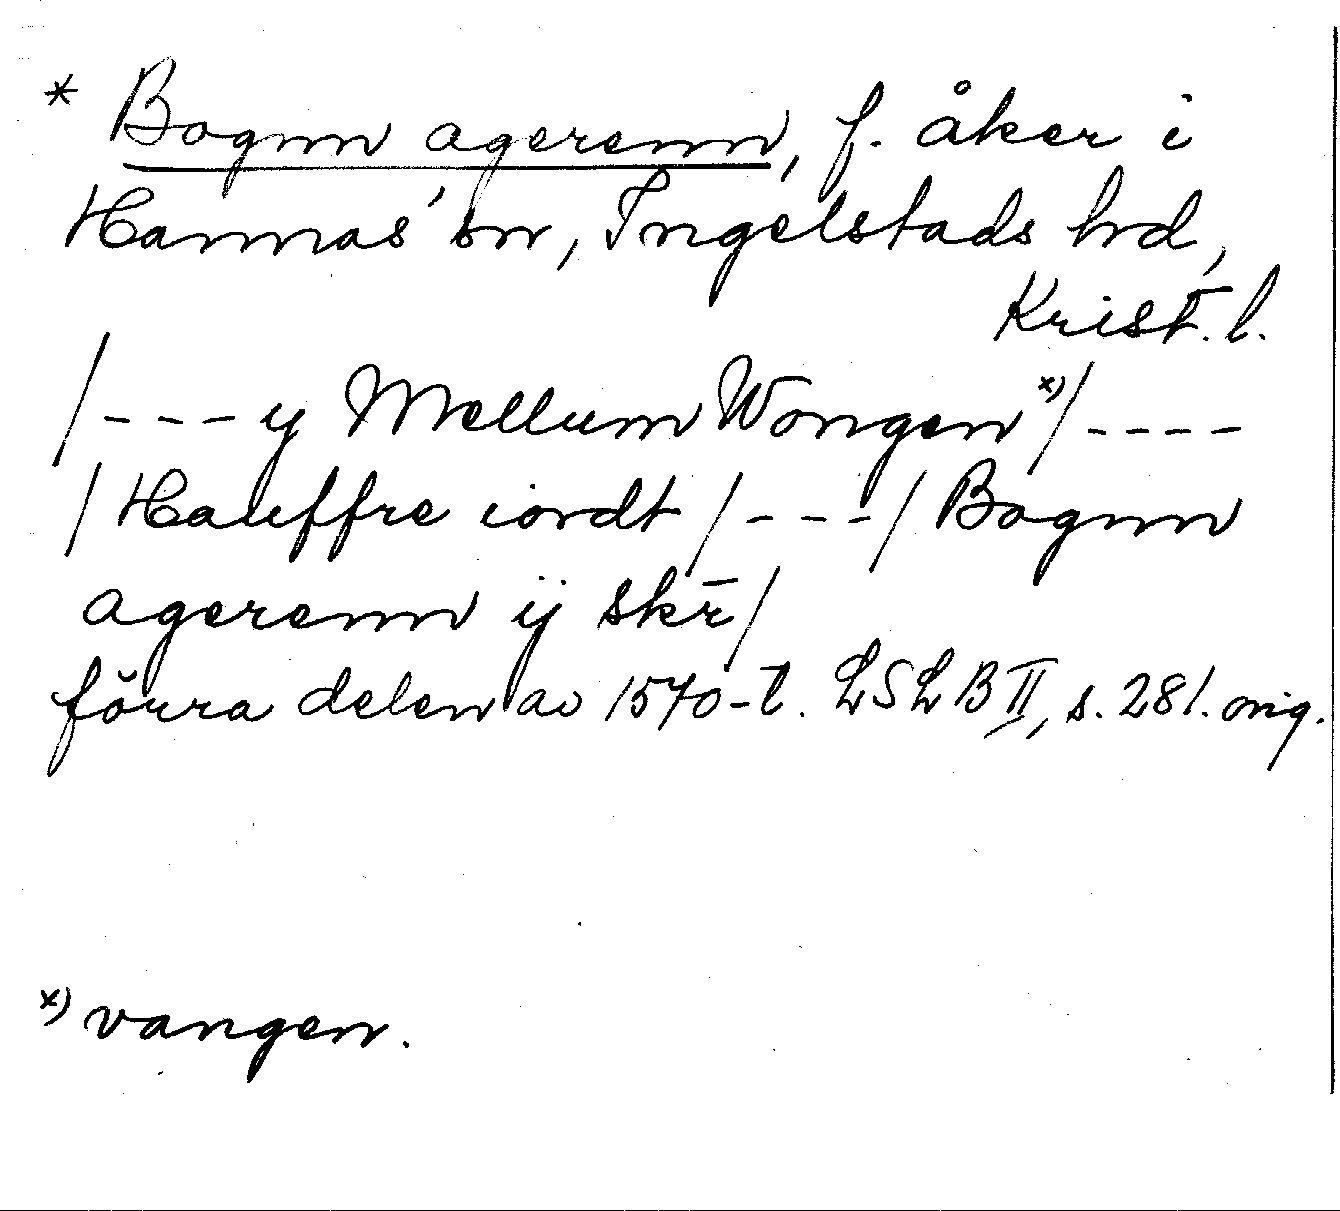 * Bognn agerenn, f. åker i
Hannas' sn, Ingelstads hrd,
Krist. l.
/---y Mellum Wongen x)/----
/Hauffre iordt/---/Bognn
agerenn ÿ skr̄/
förra delen av 1570-t. LSLB II, s. 281. orig.
x) vangen.